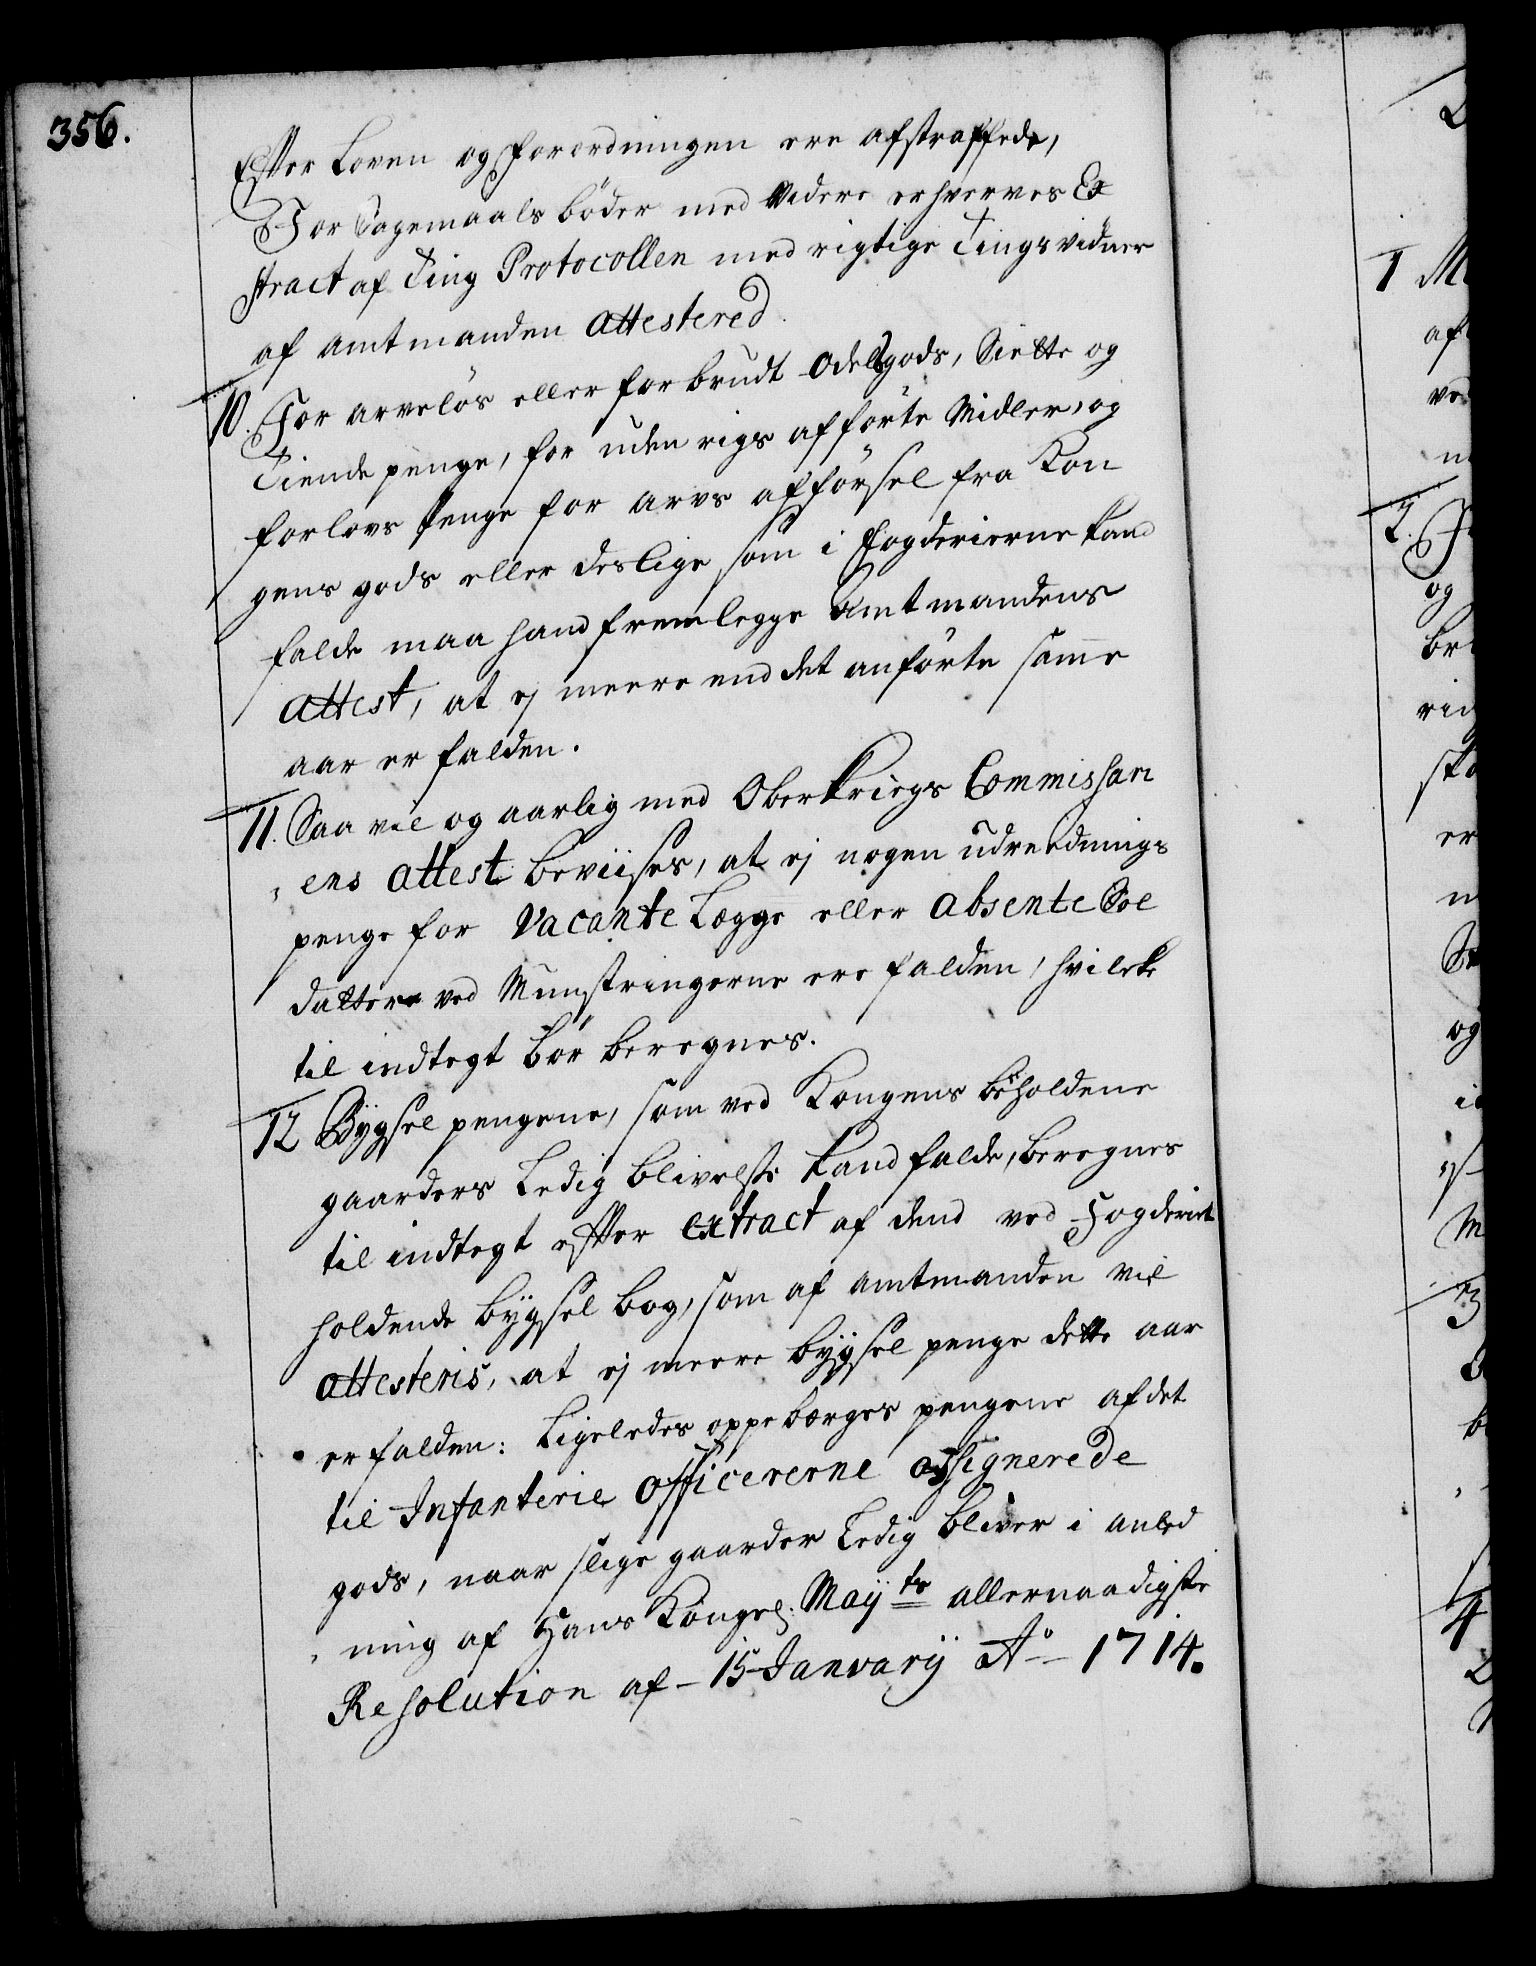 356.
Effter Loven og Forordningen ere afstraffede,
For Sagemaals bøder med Videre erhverves Ex
tract af Ting Protocollen med rigtige Tingsvidner
af amtmanden attestered.
10. For arveløs eller forbrudt odelsgods, Siette og
Tiende penge, for uden rigs afførte Midler, og
forlovs Penge for arvs afførsel fra Kon
gens gods eller deslige som i Fogderierne kand
falde maa hand fremlegge Amtmandens
attest, at ej meere end det anførte samme
aar er falden.
11. Saa vel og aarlig med OberKriegs Commissari
ens attest beviises, at ej nogen udreednings
penge for Vacante Lægge eller absente Sol
dattere ved Munstringerne ere falden, hvilcke
til indtegt bør beregnes.
12 Bÿgsel pengene, som ved Kongens beholdene
gaarders Ledig blivelse kand falde, beregnes
til indtegt effter extract af dend ved Fogderiet
holdende bÿgsel bog, som af amtmanden vil
attesteris, at ej meere bÿgsel penge dette aar
er falden: Ligeledes oppebærges pengene af det
til Infanterie Officererne assignerede
gods, naar slige gaarder Ledig bliver i anled
ning af Hans Kongel: Maÿts allernaadigste
Resolution af 15 Januarÿ Ao 1714.
1 M
af
2.
og
er
og
M
3
4